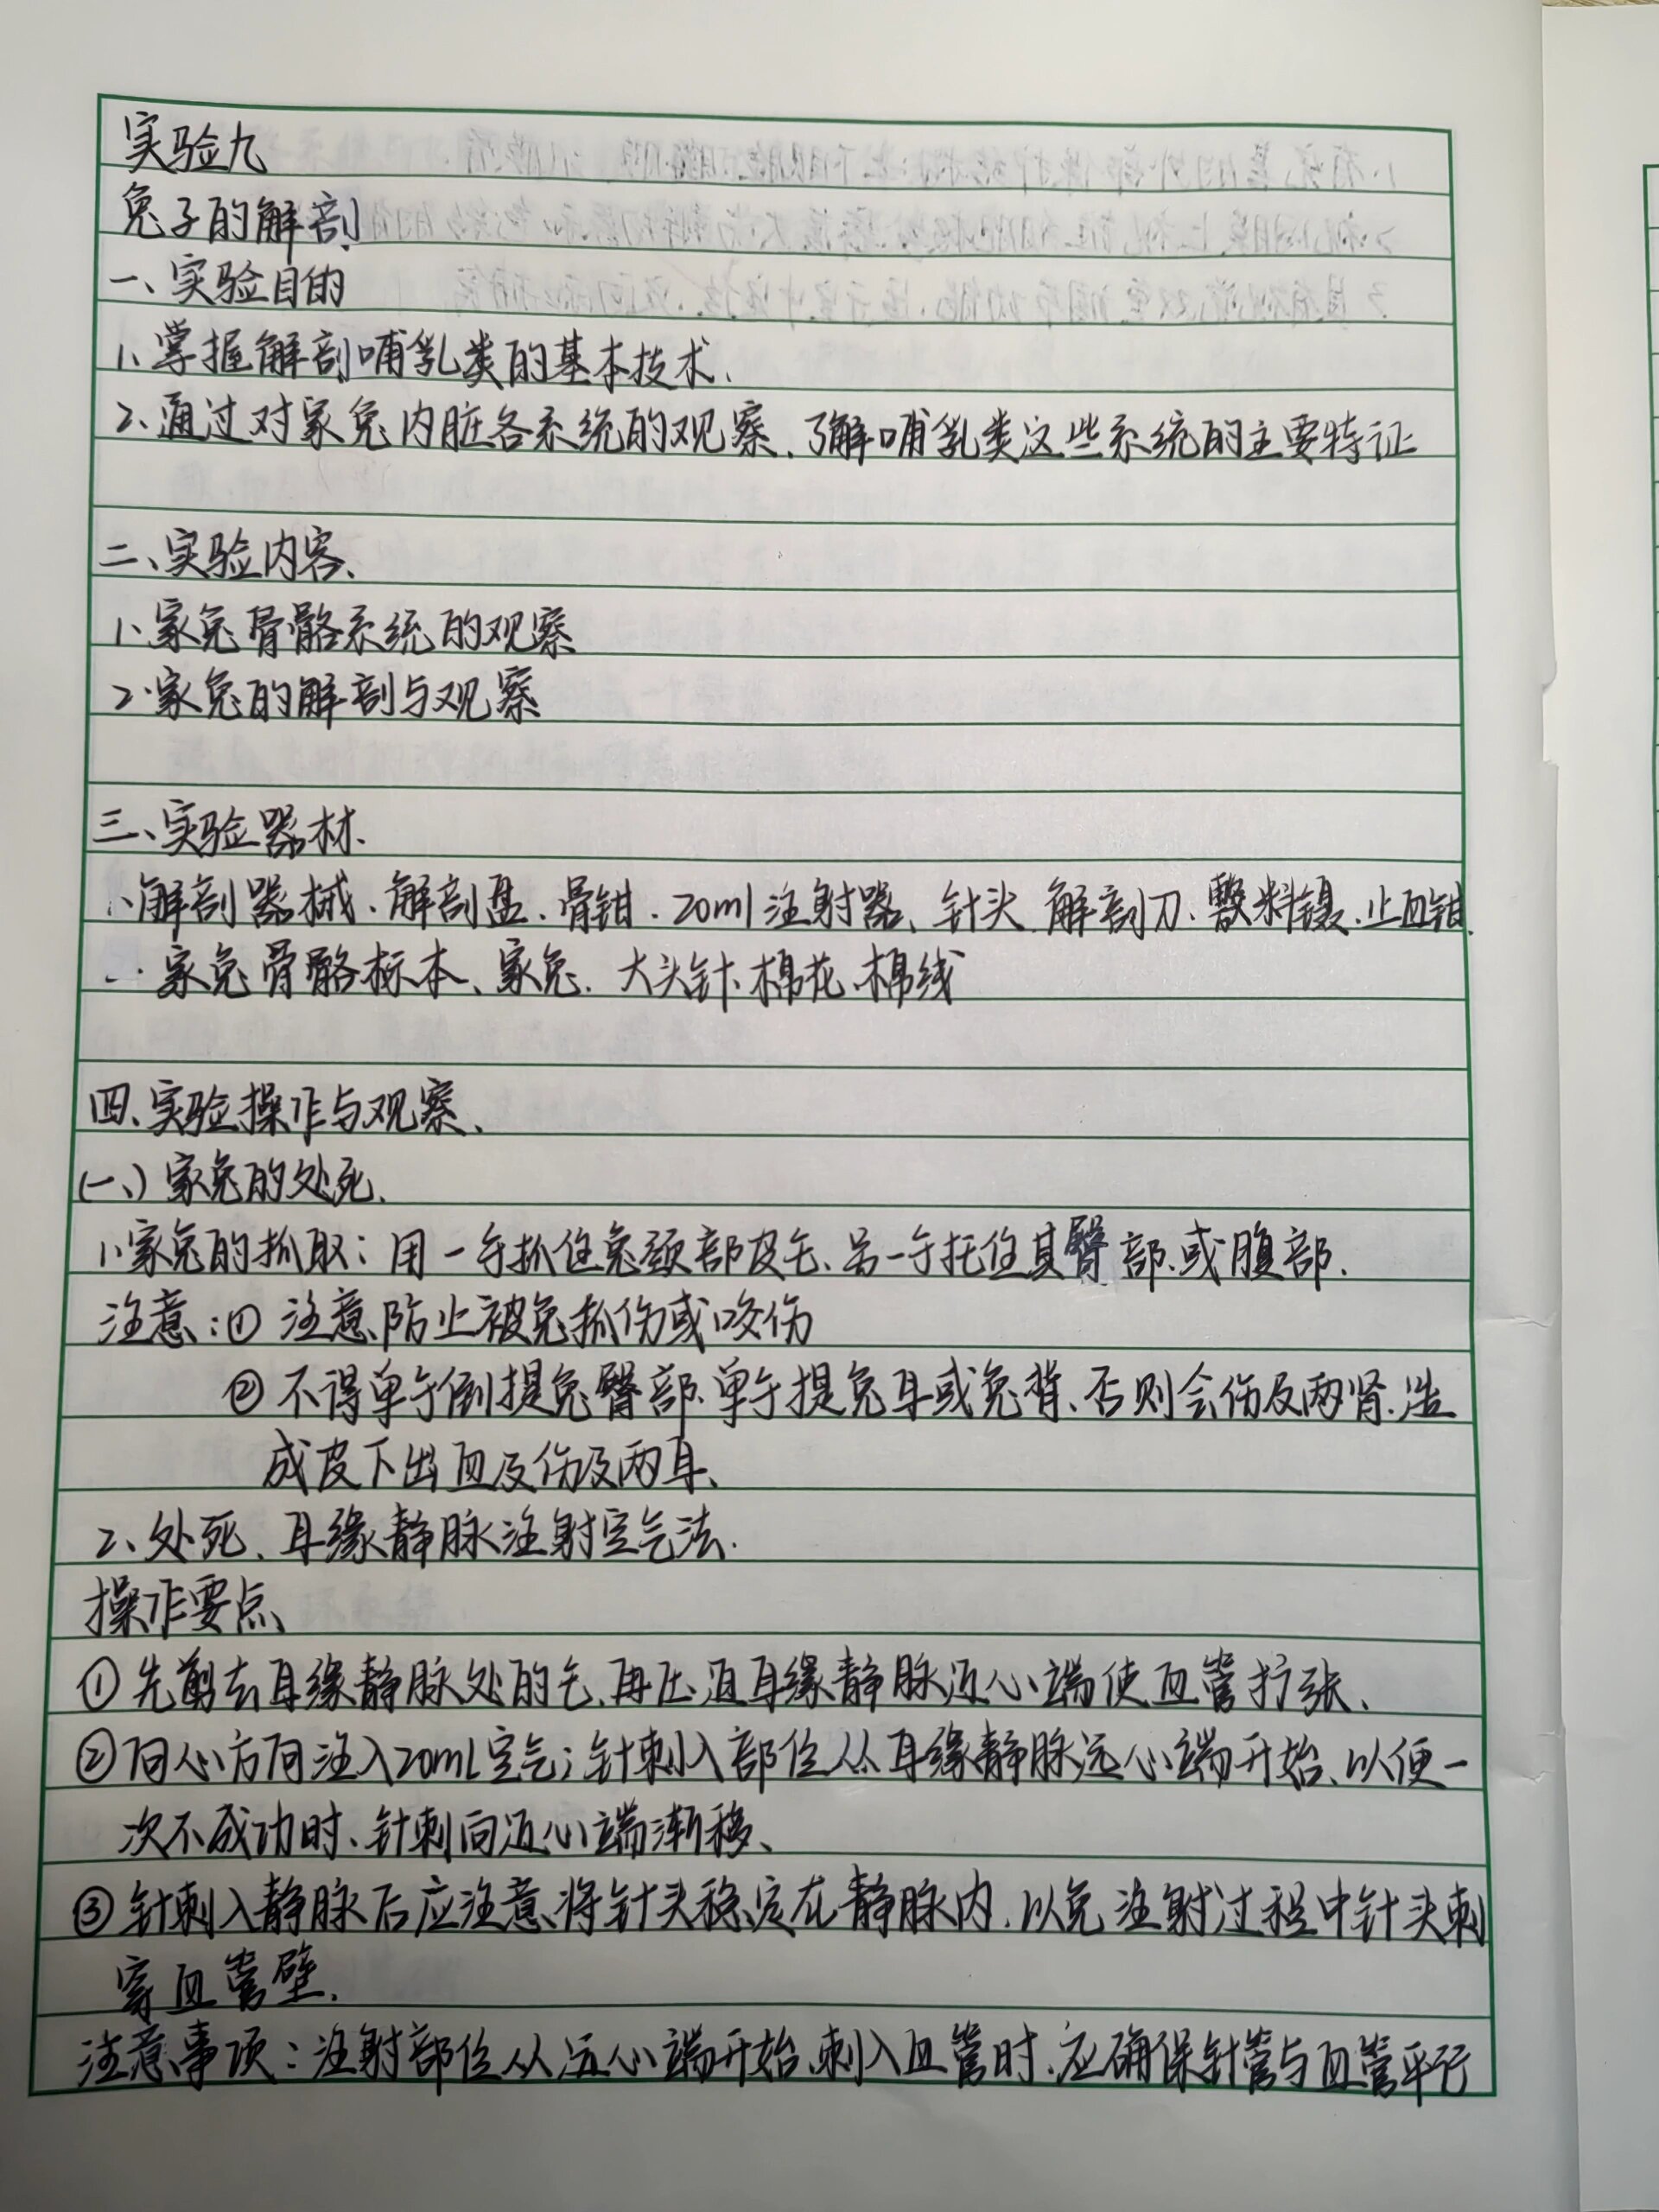 实验九
兔子的解剖
一、实验目的
1、掌握解剖哺乳类的基本技术、
2、通过对家兔内脏各系统的观察、了解哺乳类这些系统的主要特证
二、实验内容、
1、家兔骨骼系统的观察
2、家兔的解剖与观察
三、实验器材、
、解剖器械、解剖盘、骨钳、20ml注射器、针头 解剖刀、敷料镊、止血钳、
家兔骨骼标本、家兔、大头针、棉花、棉线
四、实验操作与观察、
(一、)家兔的处死、
1、家兔的抓取:用一手抓住兔颈部皮毛、另一手托住其臀部、或腹部、
注意:① 注意防止被兔抓伤或咬伤
② 不得单手倒提兔臀部、单手提兔耳或兔背、否则会伤及两肾、造
成皮下出血及伤及两耳、
2、处死、耳缘静脉注射空气法、
操作要点、
①先剪去耳缘静脉处的毛、再压迫耳缘静脉近心端使血管扩张、
②向心方向注入20mL空气;针刺入部位从耳缘静脉远心端开始、以便一
次不成功时、针刺向近心端渐移、
③针刺入静脉后应注意将针头稳定在静脉内、以免注射过程中针头刺
穿血管壁、
注意事项:注射部位从远心端开始、刺入血管时、应确保针管与血管平行